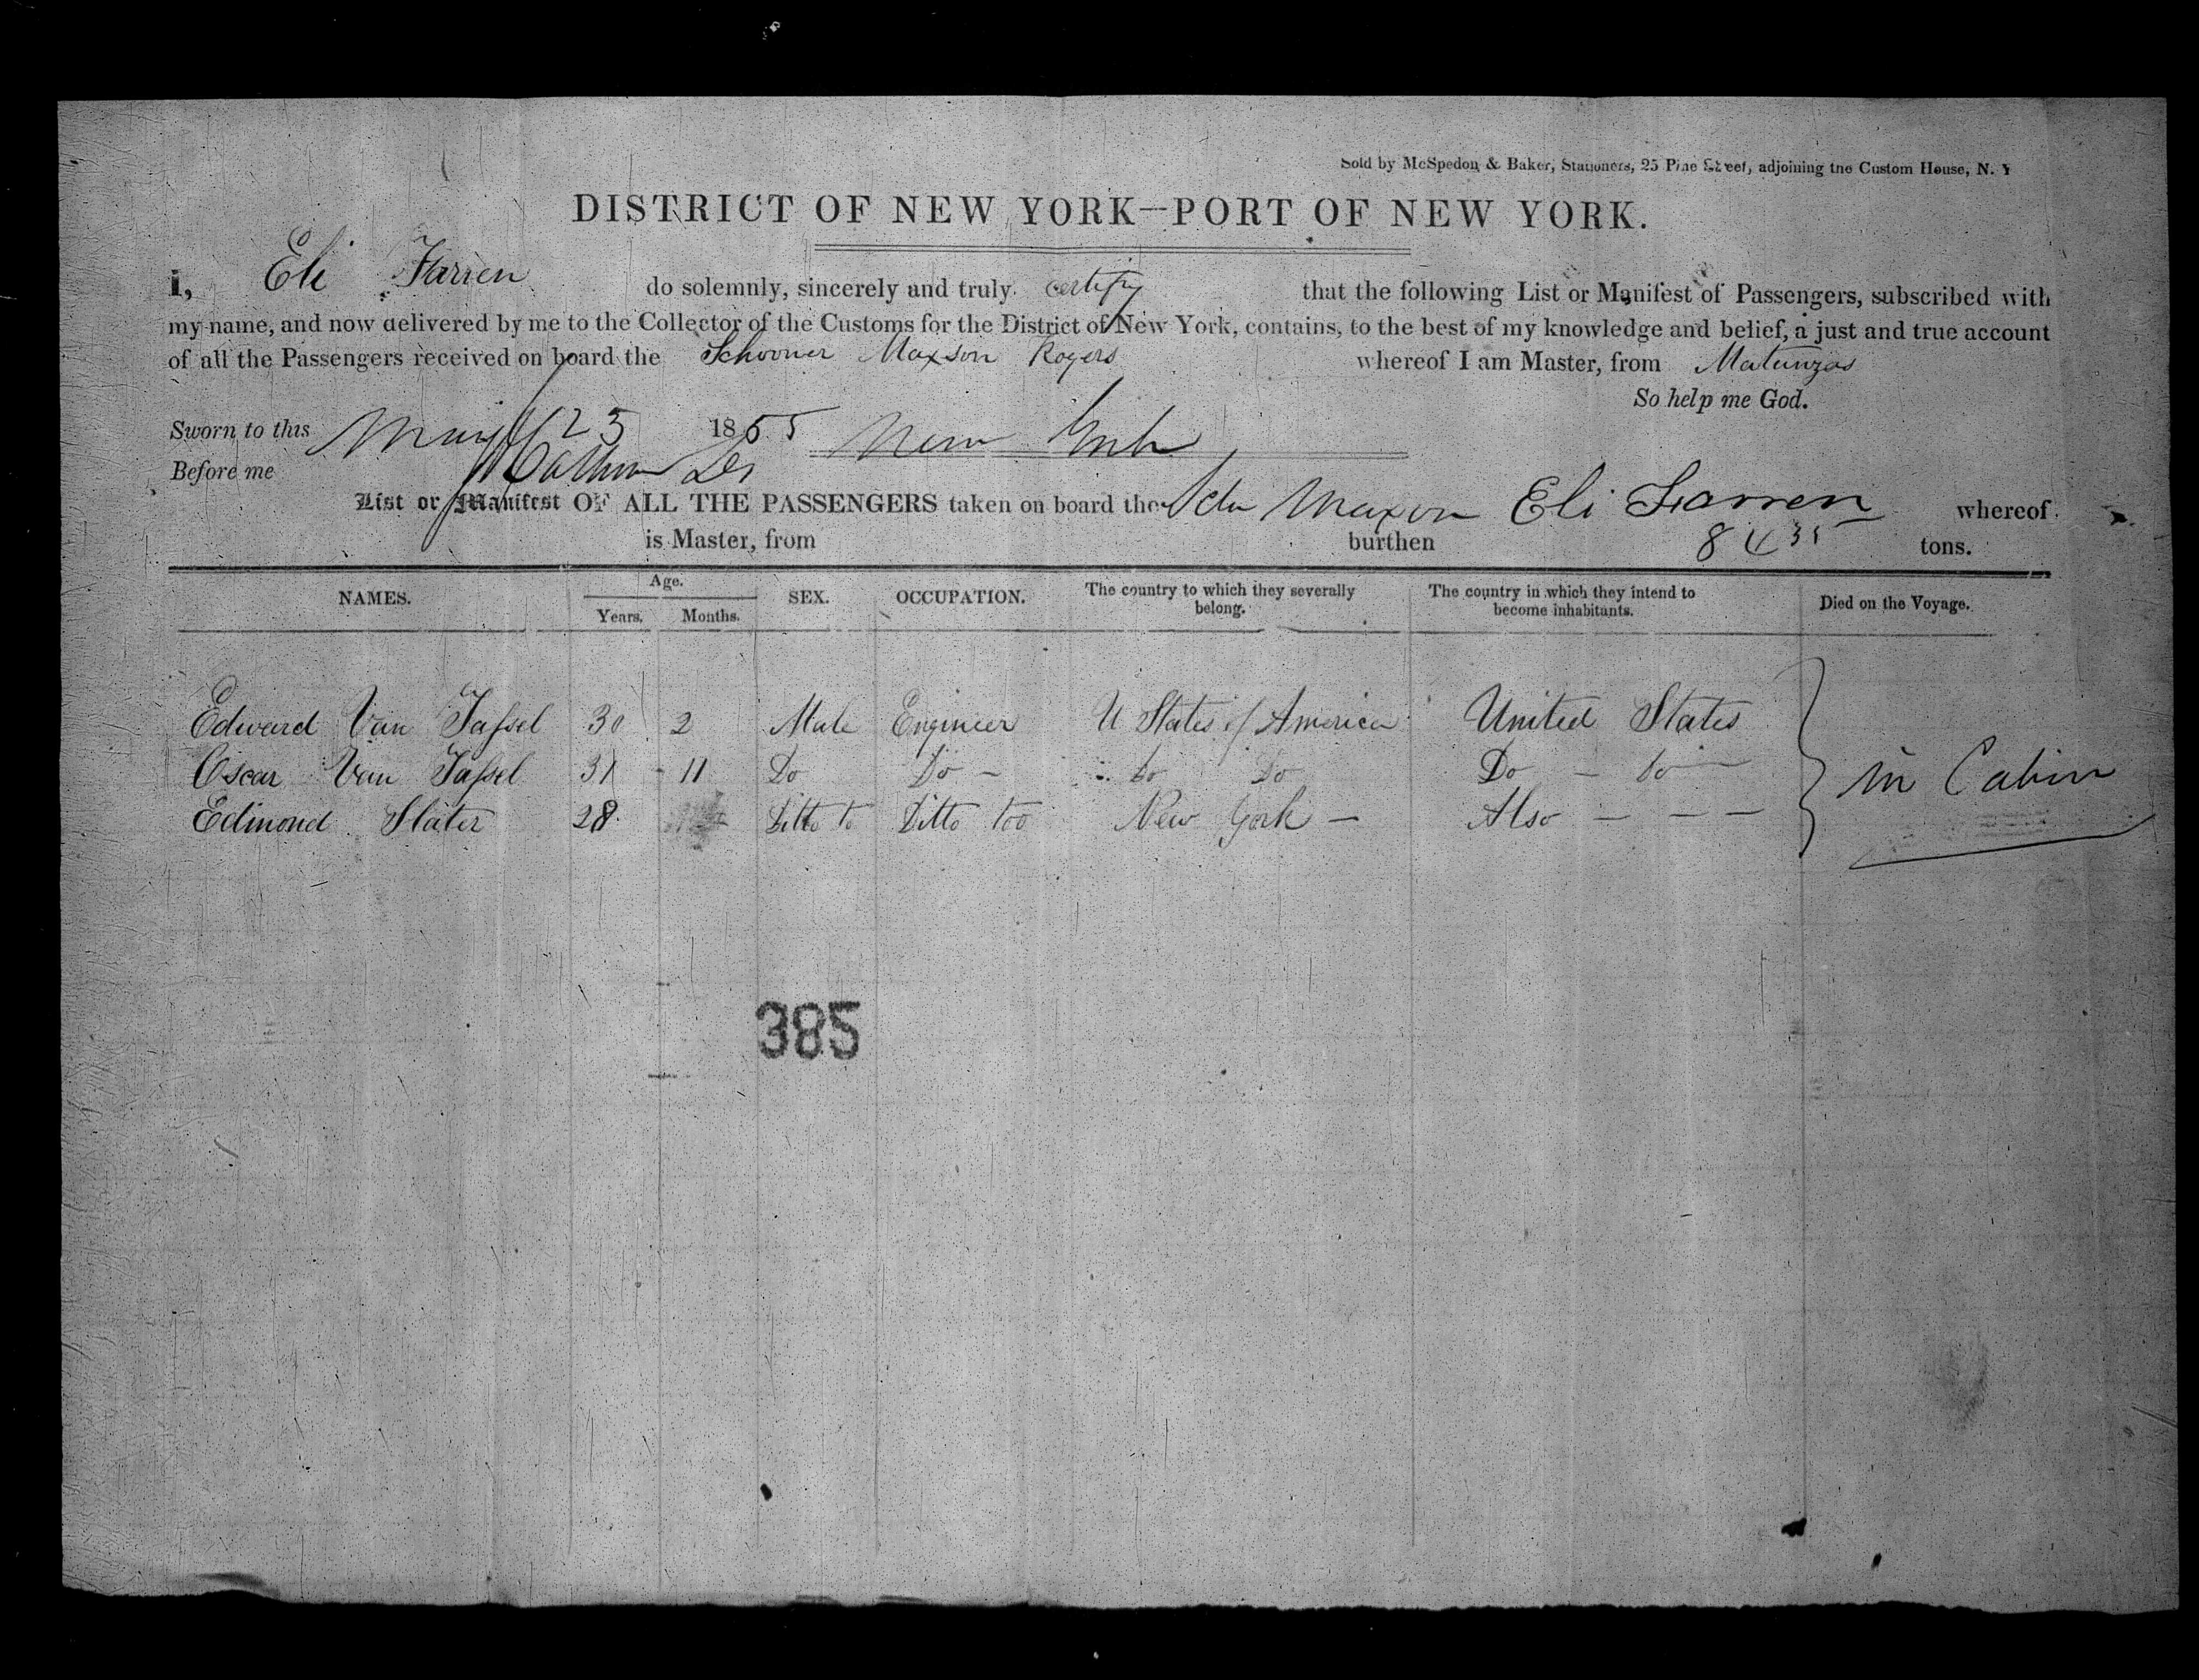 Sold by McSpedon & Baker, Stationers, 25 Pine Street, adjoining the Custom House, N. Y
DISTRICT OF NEW YORK—PORT OF NEW YORK.
I, Eli Farren do solemnly, sincerely and truly certify that the following List or Manifest of Passengers, subscribed with
my name, and now delivered by me to the Collector of the Customs for the District of New York, contains, to the best of my knowledge and belief, a just and true account
of all the Passengers received on board the Schooner Maxson Rogers whereof I am Master, from Matanzas
So help me God.
Sworn to this May 23 1855 New York
Before me
List or Manifest OF ALL THE PASSENGERS taken on board the Schr Maxson Eli Farren whereof
is Master, from burthen 84 35 tons.
NAMES. Age. Years. Months. SEX. OCCUPATION. The country to which they severally belong. The country in which they intend to become inhabitants. Died on the Voyage.
Edward Van Tassel 30 2 Male Engineer U States of America United States
Oscar Van Tassel 31 11 Do Do - Do Do Do - Do
Edmond Slater 28 Ditto to Ditto too New York - Also - - -
in Cabin
385